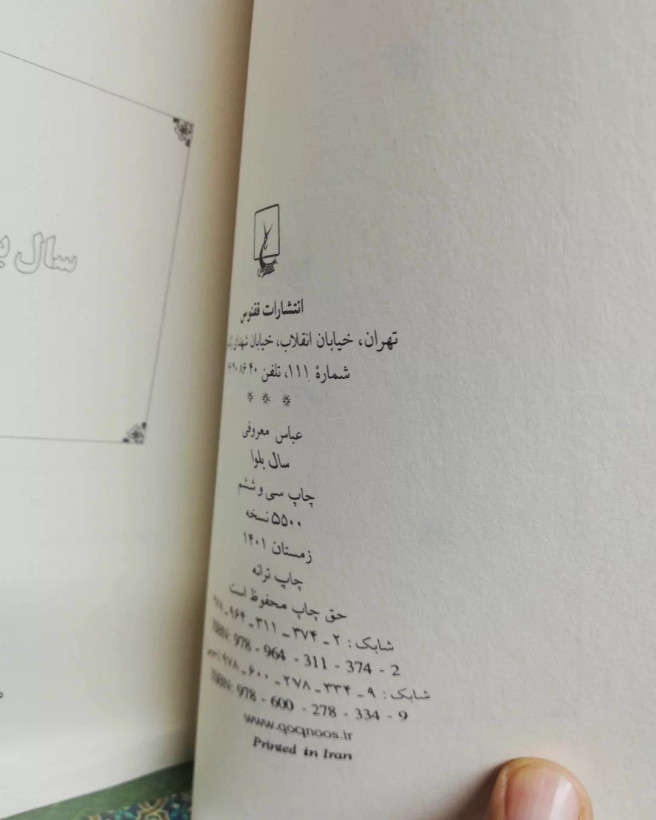 سال
انتشارات ققنوس
تهران، خیابان انقلاب، خیابان شهدای
شمارهٔ ۱۱۱، تلفن ۴۰ ۸۶
* * *
عباس معروفی
سال بلوا
چاپ سی و ششم
۵۵۰۰ نسخه
زمستان ۱۴۰۱
چاپ ترانه
حق چاپ محفوظ است
شابک: ۲ ـ ۳۷۴ ـ ۳۱۱ ـ ۹۶۴ ـ ۹۷۸
ISBN: 978 - 964 - 311 - 374 - 2
شابک: ۹ ـ ۳۳۴ ـ ۲۷۸ ـ ۶۰۰ ـ ۹۷۸
ISBN: 978 - 600 - 278 - 334 - 9
www.qoqnoos.ir
Printed in Iran